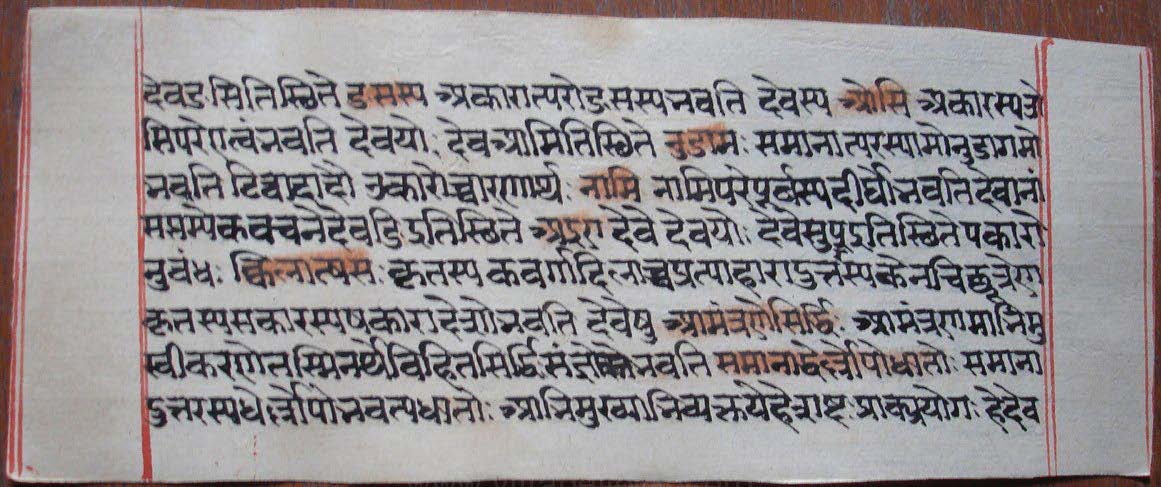 देवङसितिस्थिते ङसस्य अकारात्परोङसस्यभवति देवस्य ओसि अकारस्यओ
सिपरेएत्वंभवति देवयोः देवआमितिस्थिते नुडामः समानात्परस्यामोनुडागमो
भवति टित्वादादौ उकारोच्चारणार्थः नामि नामिपरेपूर्वस्यदीर्घोभवतिदेवानां
सप्तम्येकवचनेदेवङिइतिस्थिते अइए देवे देवयोः देवेसुपइतिस्थितेपकारो
नुबंधः क्विलात्षसः कृतस्य कवर्गादिलाच्चप्रत्याहारादुत्तरस्यकेनचित्सूत्रेण
कृतस्यसकारस्यषकारादेशोभवति देवेषु आमंत्रणेसिर्द्धिः आमंत्रणमाभिमु
ख्यीकरणंतस्मिन्नर्थेविहितसिर्द्धिसंज्ञोभवति समानाद्धेर्लोपोधातोः समाना
दुत्तरस्यधेर्लोपोभवत्यधातोः आभिमुख्याभिव्यक्तयेहेशब्दस्यप्राक्प्रयोगः हेदेव